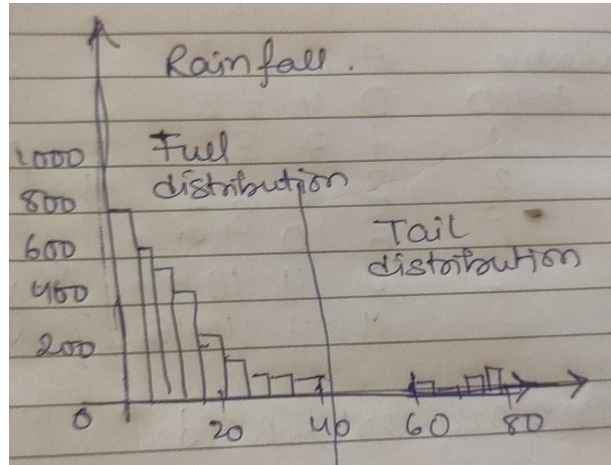 Rainfall.
Full
distribution
Tail
distribution
1000
800
600
400
200
0
20
40
60
80